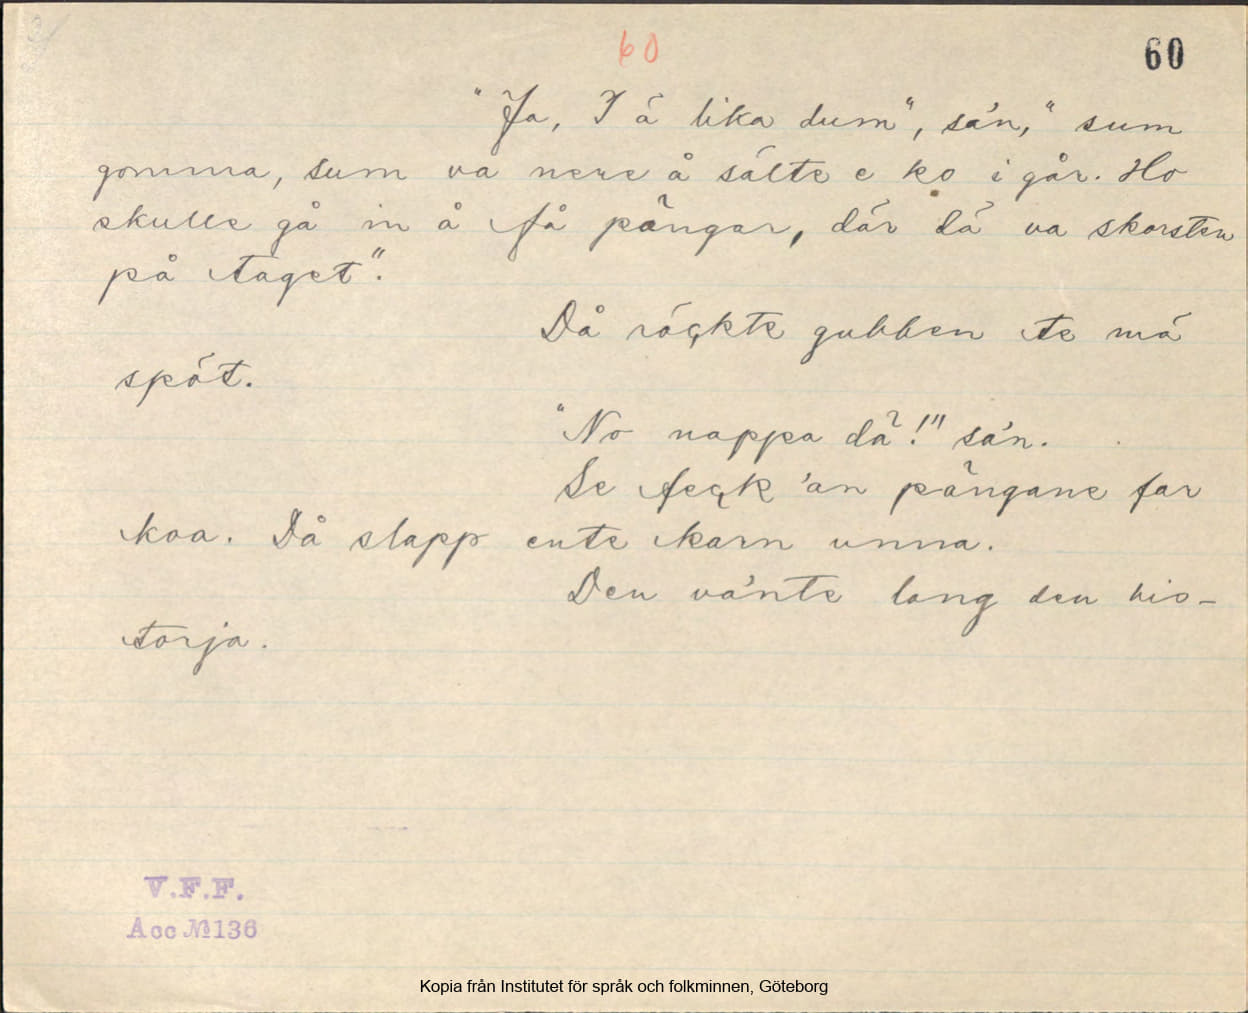 60
60
"Ja, I ä lika dum", sa'n, "sum
gomma, sum va nere å sälte e ko i går. Ho
skulle gå in å få pängar, där dä va skorsten
på taget".
Då röckte gubben te mä
spöt.
"No nappa dä!" sa'n.
Se feck 'an pängane far
koa. Då slapp ente karn unna.
Den va'nte lang den his-
torja.
V.F.F.
Acc №136
Kopia från Institutet för språk och folkminnen, Göteborg